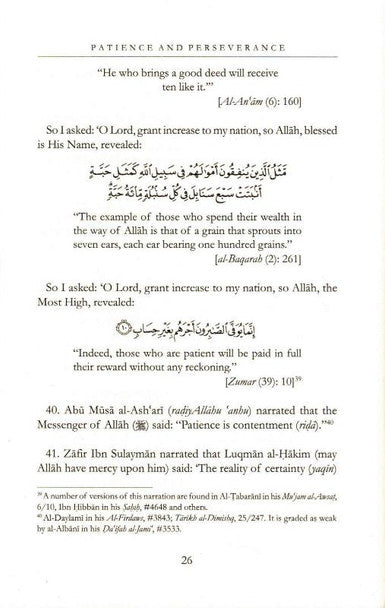 PATIENCE AND PERSEVERANCE
“He who brings a good deed will receive
ten like it.”’
[Al-An‘ām (6): 160]
So I asked: ‘O Lord, grant increase to my nation, so Allāh, blessed
is His Name, revealed:
مَّثَلُ ٱلَّذِينَ يُنفِقُونَ أَمْوَٰلَهُمْ فِى سَبِيلِ ٱللَّهِ كَمَثَلِ حَبَّةٍ
أَنۢبَتَتْ سَبْعَ سَنَابِلَ فِى كُلِّ سُنۢبُلَةٍ مِّا۟ئَةُ حَبَّةٍ
“The example of those who spend their wealth in
the way of Allāh is that of a grain that sprouts into
seven ears, each ear bearing one hundred grains.”
[al-Baqarah (2): 261]
So I asked: ‘O Lord, grant increase to my nation, so Allāh, the
Most High, revealed:
إِنَّمَا يُوَفَّى ٱلصَّٰبِرُونَ أَجْرَهُم بِغَيْرِ حِسَابٍ ﴿١٠﴾
“Indeed, those who are patient will be paid in full
their reward without any reckoning.”
[Zumar (39): 10]³⁹
40. Abū Mūsā al-Ash‘arī (raḍiyAllāhu ‘anhu) narrated that the
Messenger of Allāh (ﷺ) said: “Patience is contentment (riḍā).”⁴⁰
41. Zāfir Ibn Sulaymān narrated that Luqmān al-Ḥākim (may
Allāh have mercy upon him) said: ‘The reality of certainty (yaqīn)
³⁹ A number of versions of this narration are found in Al-Ṭabarānī in his Mu‘jam al-Awsaṭ,
6/10, Ibn Hibbān in his Ṣaḥīḥ, #4648 and others.
⁴⁰ Al-Daylamī in his Al-Firdaws, #3843; Tārikh al-Dimishq, 25/247. It is graded as weak
by al-Albānī in his Ḍa‘īfah al-Jamī‘, #3533.
26